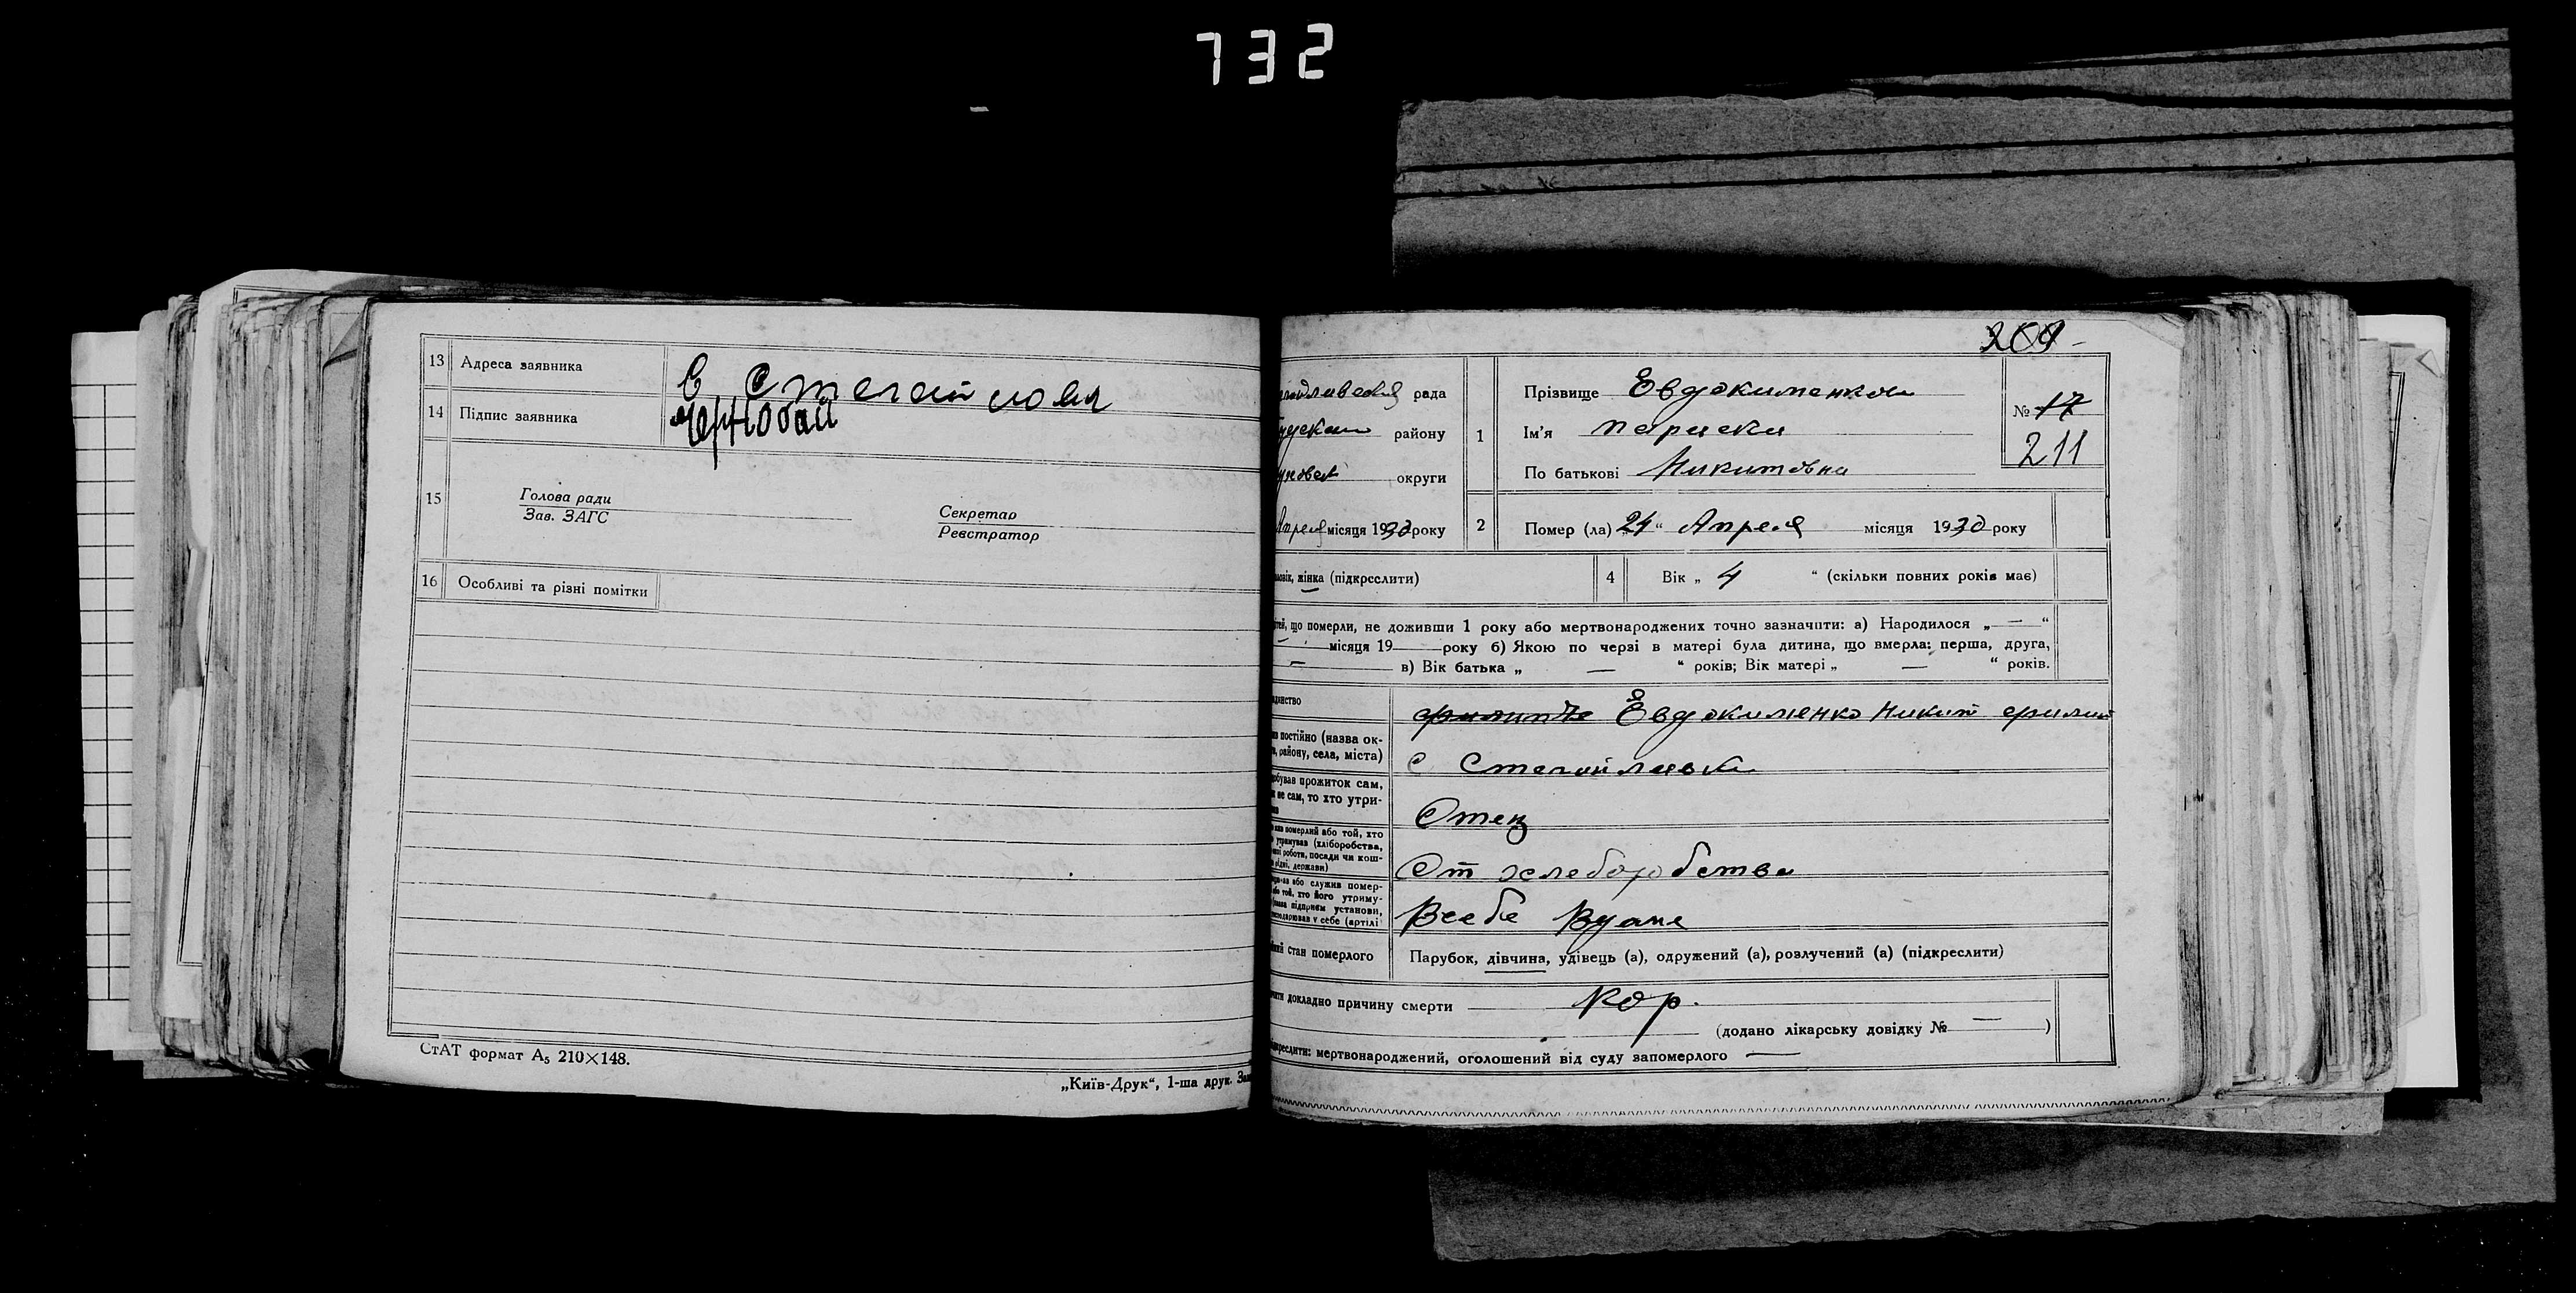 732
13 Адреса заявника
14 Підпис заявника
15 Голова ради
Зав. ЗАГС
Секретар
Реєстратор
16 Особливі та різні помітки
СтАТ формат А₅ 210×148.
„Київ-Друк“, 1-ша друк.
209
рада
району
округи
місяця 1930 року
1 Прізвище Евдокименкои
Ім'я Параски
По батькові Никитовна
№ 17
211
2 Помер (ла) 24 “ Апреля місяця 1930 року
жінка (підкреслити)
4 Вік „ 4 “ (скільки повних років має)
що померли, не доживши 1 року або мертвонароджених точно зазначити: а) Народилося „ — “
— місяця 19 року б) Якою по черзі в матері була дитина, що вмерла: перша, друга,
— в) Вік батька „ — “ років; Вік матері „ — “ років.
Евдокименко Никит филип
постійно (назва ок-
району, села, міста) с
прожиток сам,
не сам, то хто утри- Отец
померлий або той, хто
утримував (хліборобства,
роботи, посади чи кош-
держави) От хлеборобства
або служив помер-
той, хто його утриму-
установи,
у себе (артілі Всебе
стан померлого Парубок, дівчина, удівець (а), одружений (а), розлучений (а) (підкреслити)
докладно причину смерти Кор.
(додано лікарську довідку № — )
мертвонароджений, оголошений від суду запомерлого —